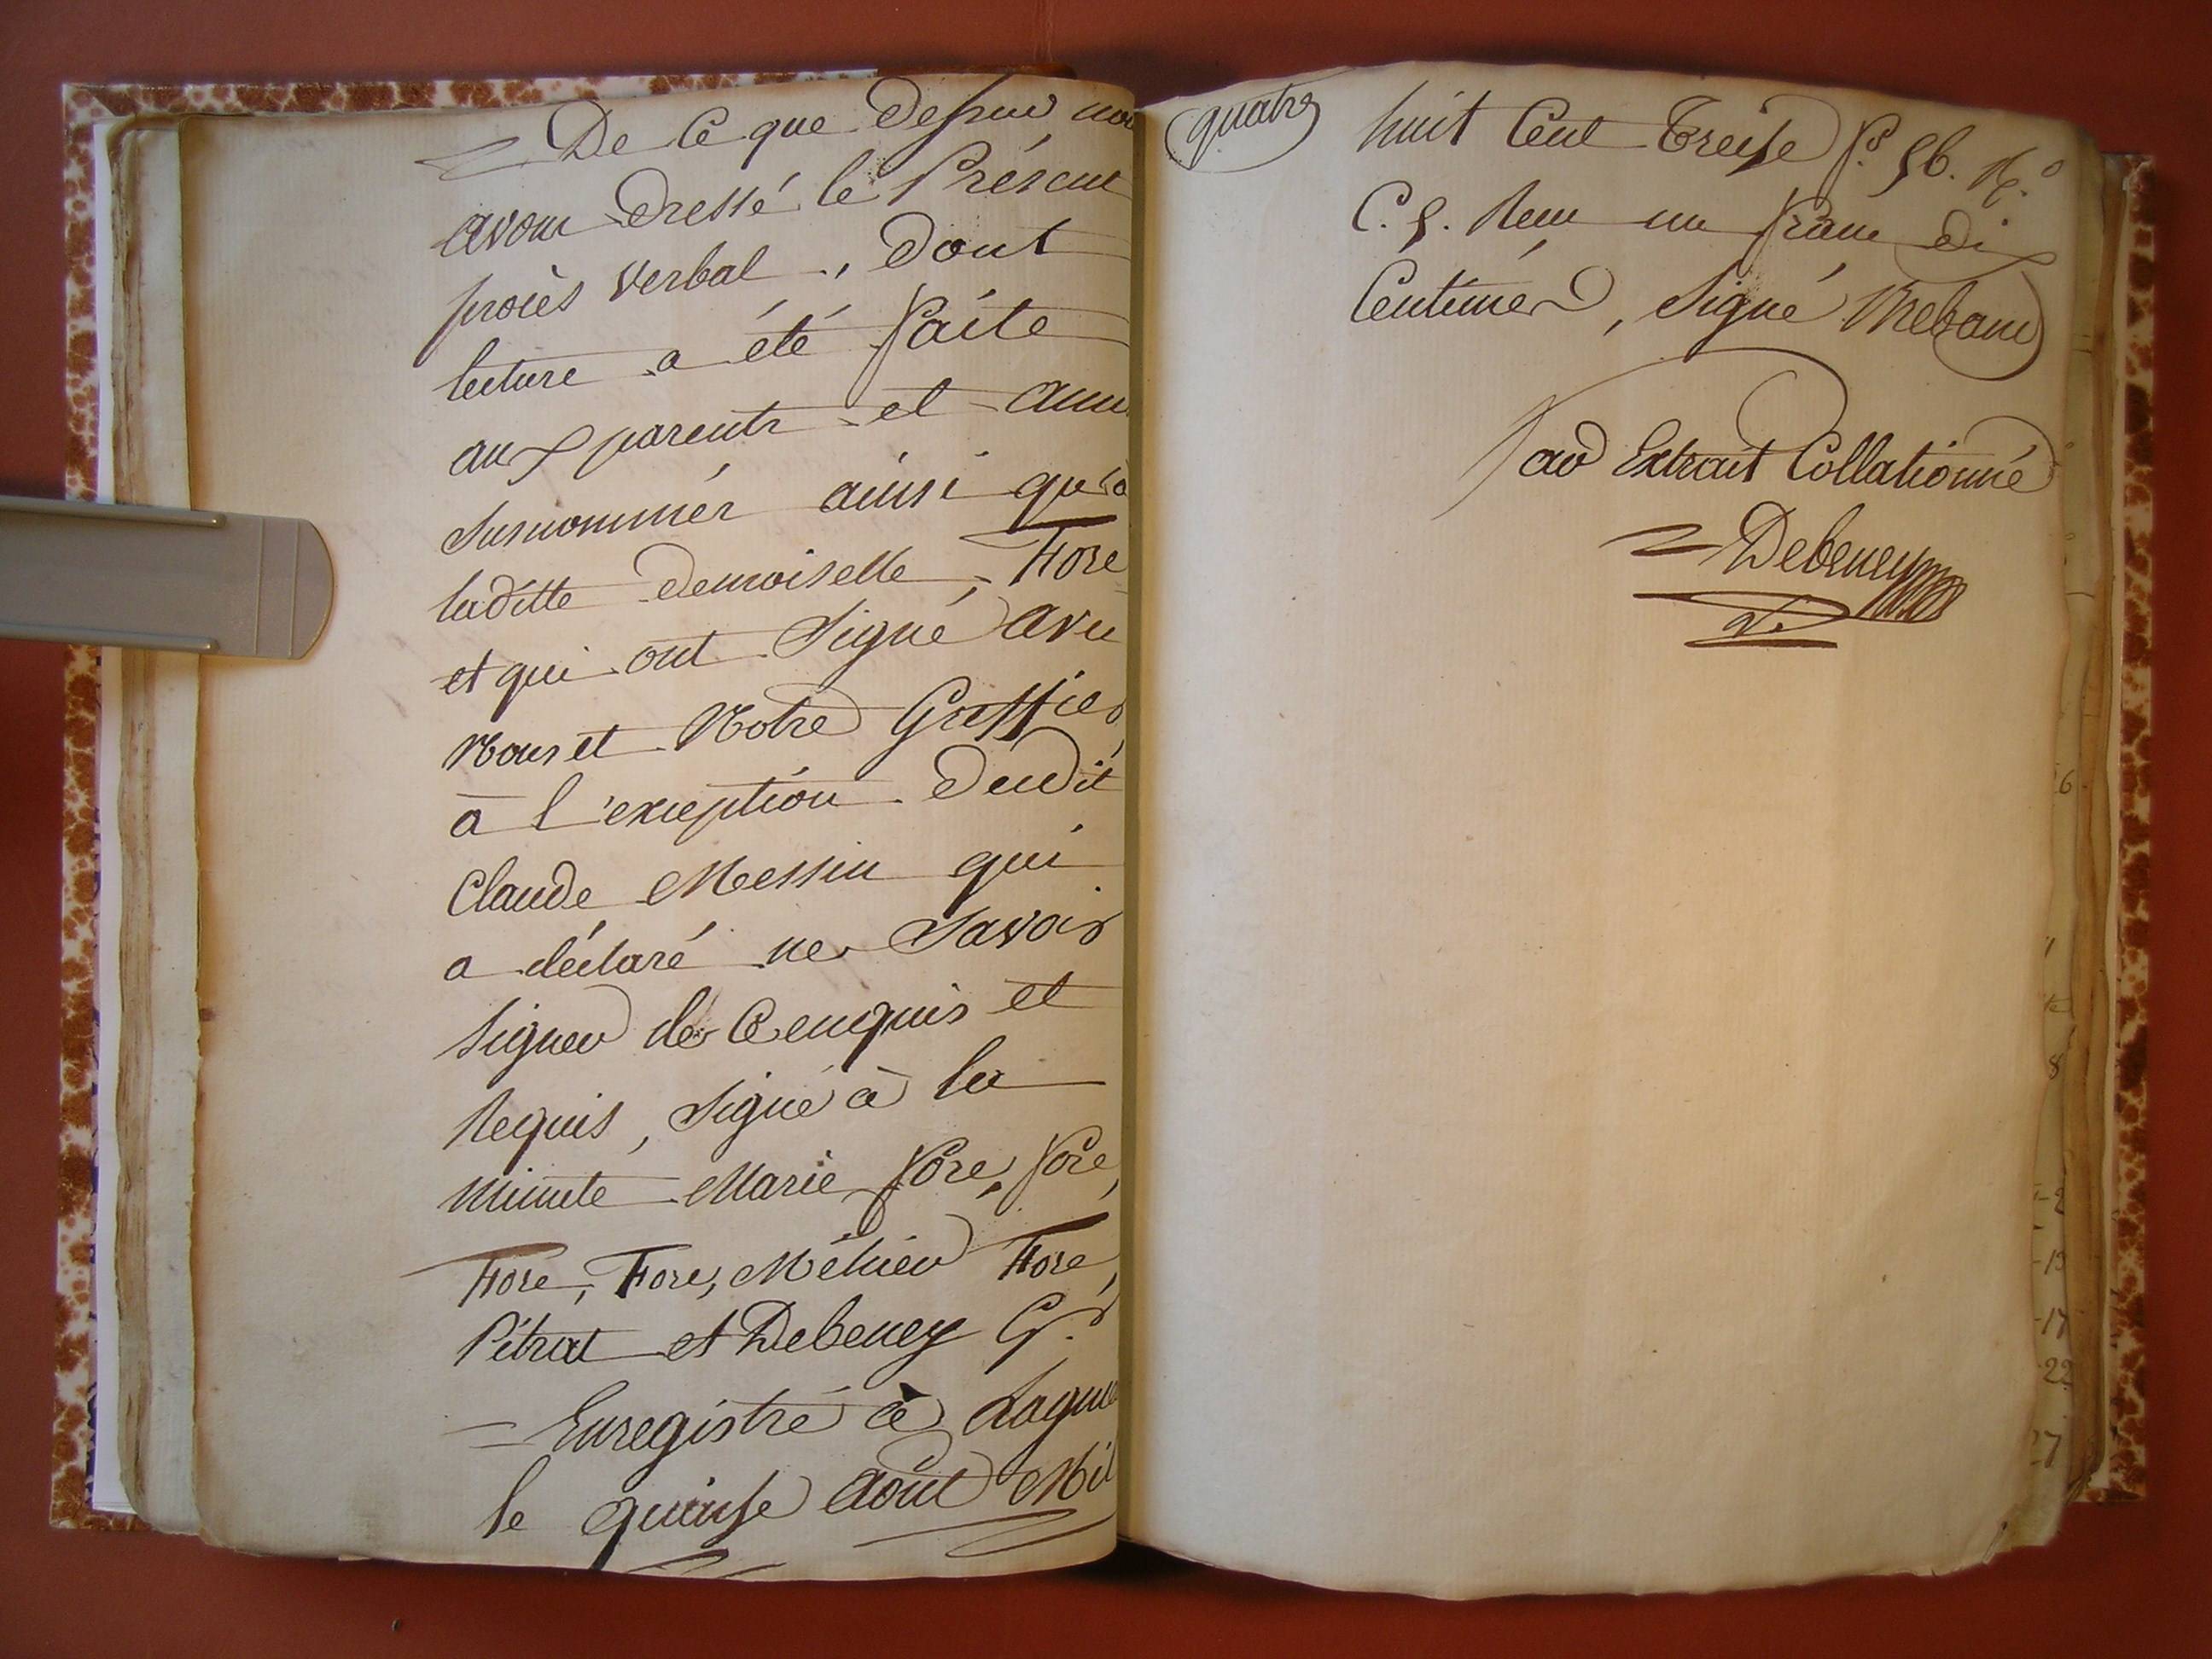 De Ce que dessus nous
avons dressé le Présent
procès verbal, dont
lecture a été faite
aux parents et amis
susnommés ainsi qu'à
laditte demoiselle, Fore
et qui ont Signé avec
Nous et Notre Greffier,
à l'exception dudit
Claude Messin qui
a déclaré ne Savoir
Signer de Ce enquis et
Requis, Signé à la
minute Marie fore, fore,
Fore, Fore, Méhier Fore,
Pitrat et Debeney G.r
Enregistré à Lagnieu
le quinse août Mil
quatre
huit Cent Treise f.o 56. R.o
C. 5. Reçu un franc dix
Centimes, Signé
Par Extrait Collationné
Debeney